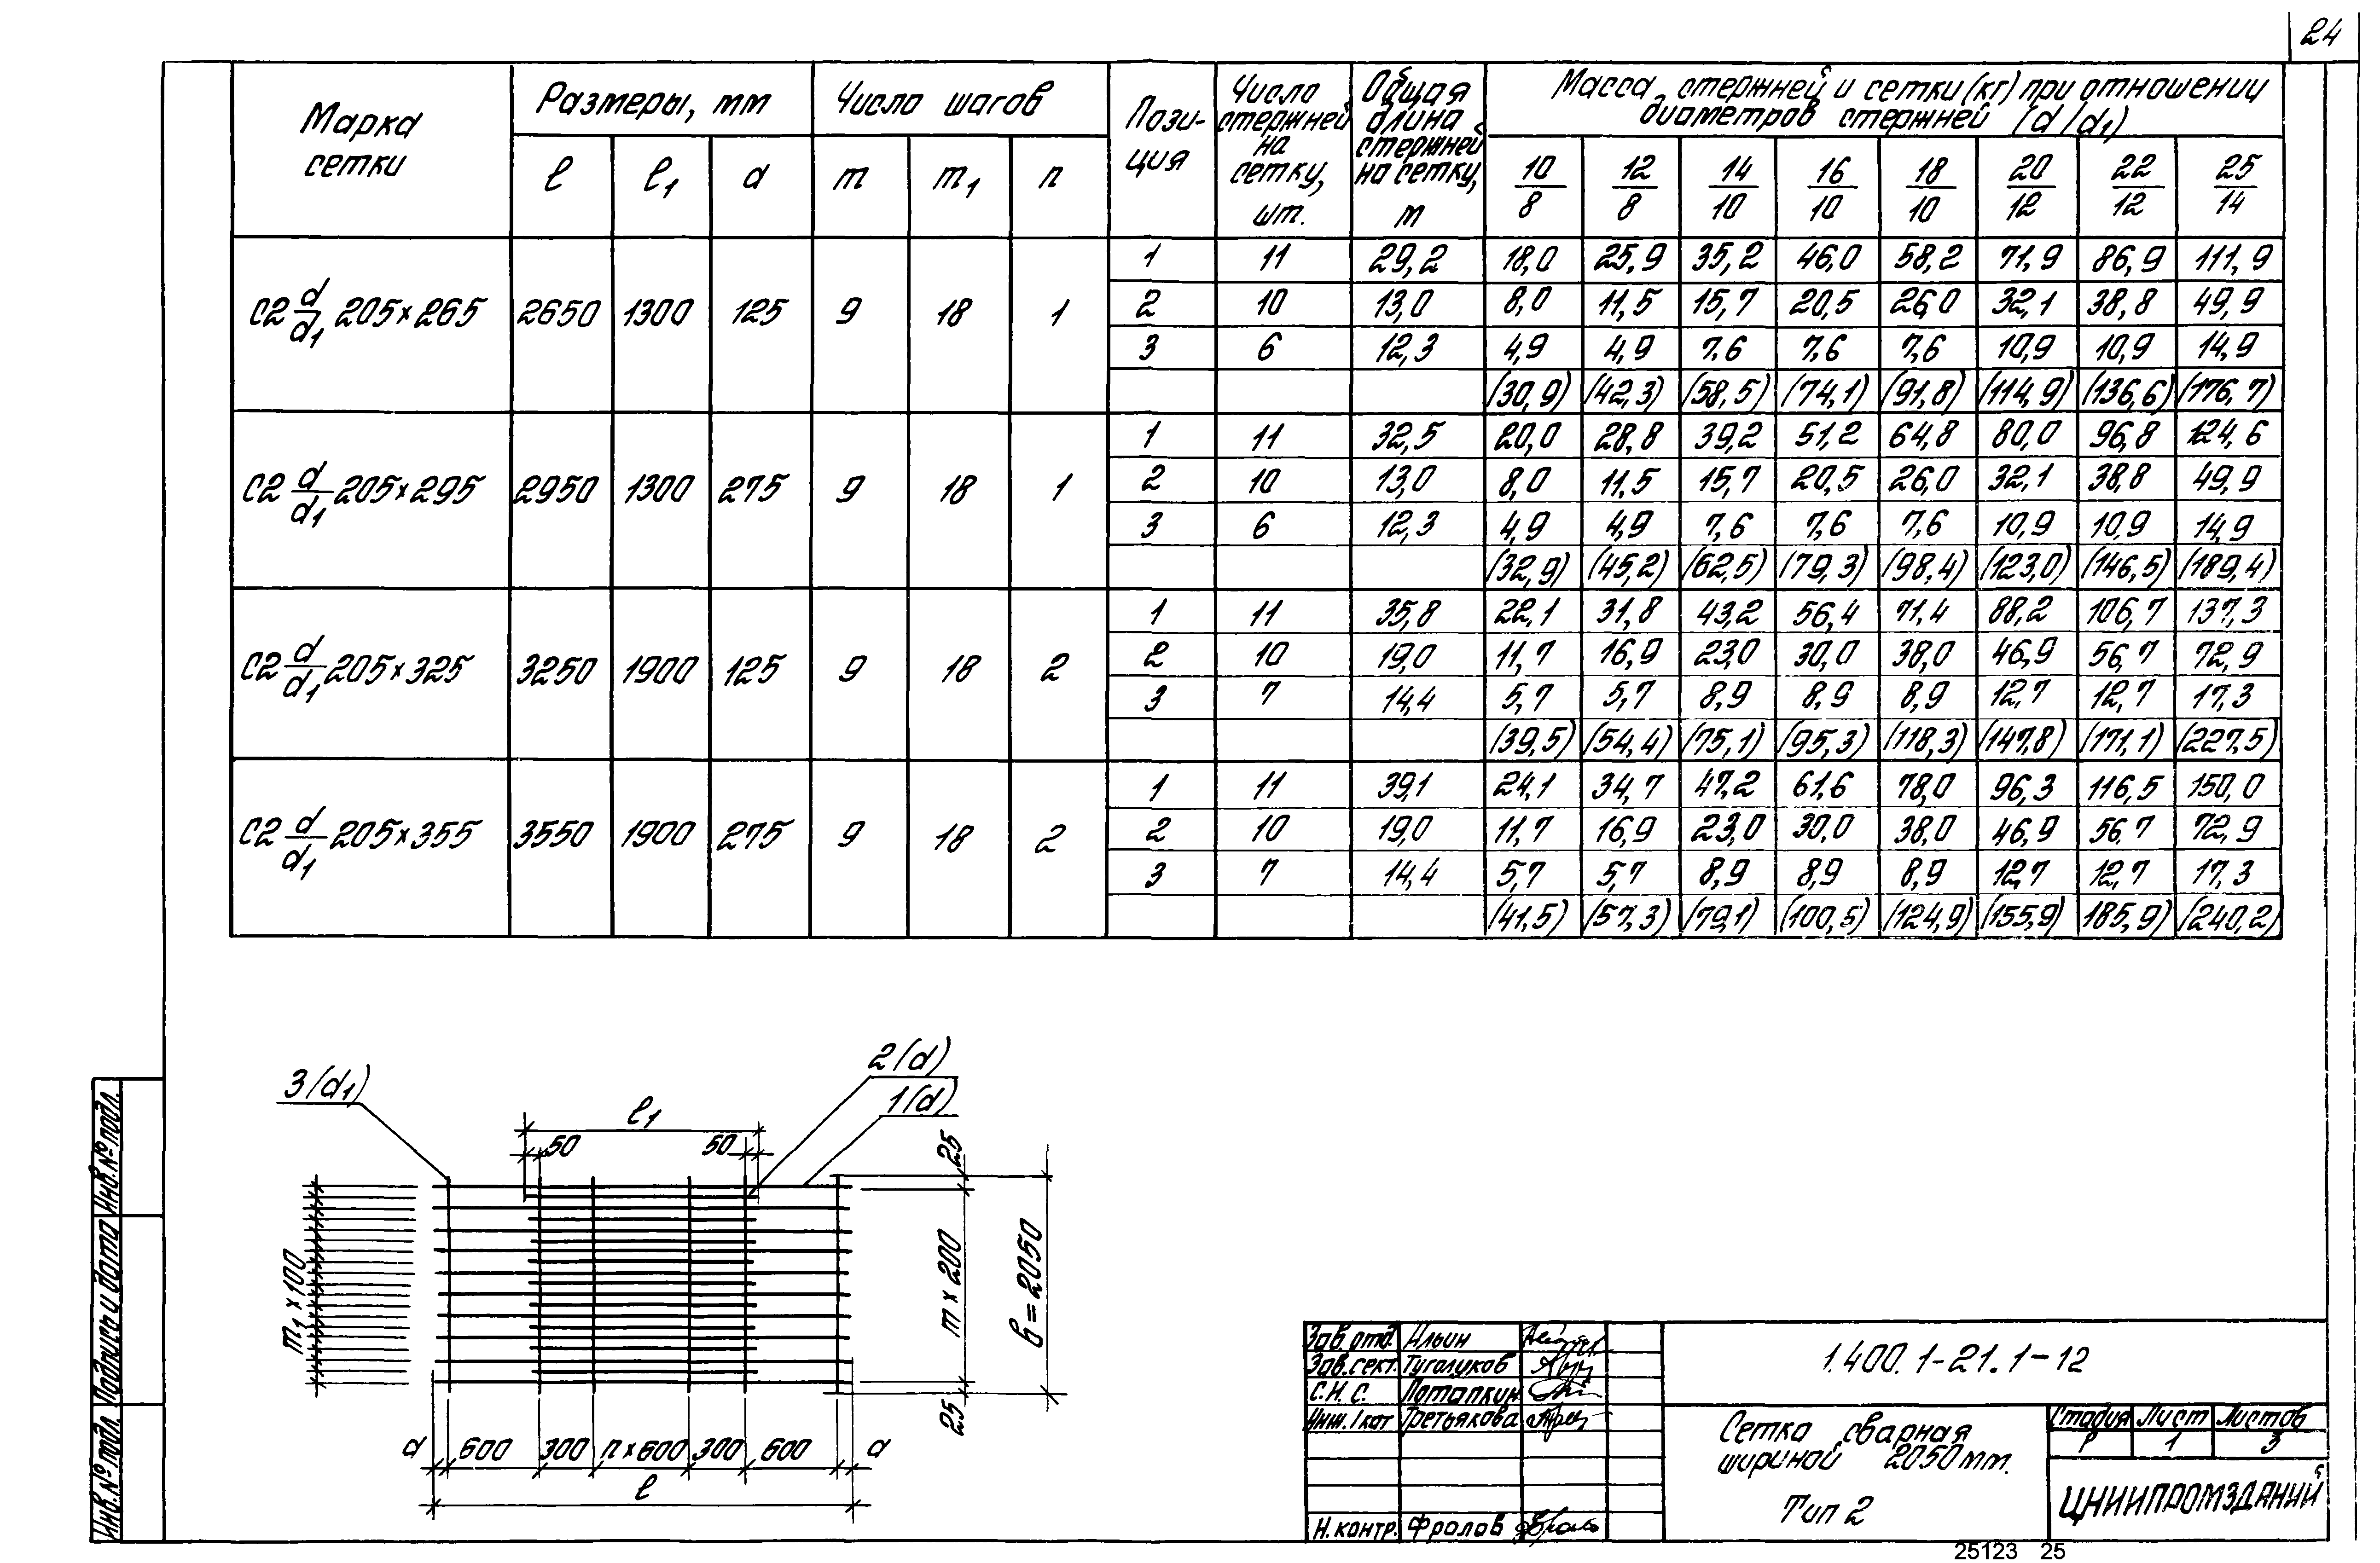 24
Марка сетки
Размеры, мм
Число шагов
Пози-ция
Число стержней на сетку, шт.
Общая длина стержней на сетку, м
Масса стержней и сетки (кг) при отношении
диаметров стержней (d/d1)
ℓ ℓ1 a m m1 n
10/8 12/8 14/10 16/10 18/10 20/12 22/12 25/14
С2 d/d1 205×265 2650 1300 125 9 18 1
1 11 29,2 18,0 25,9 35,2 46,0 58,2 71,9 86,9 111,9
2 10 13,0 8,0 11,5 15,7 20,5 26,0 32,1 38,8 49,9
3 6 12,3 4,9 4,9 7,6 7,6 7,6 10,9 10,9 14,9
(30,9) (42,3) (58,5) (74,1) (91,8) (114,9) (136,6) (176,7)
С2 d/d1 205×295 2950 1300 275 9 18 1
1 11 32,5 20,0 28,8 39,2 51,2 64,8 80,0 96,8 124,6
2 10 13,0 8,0 11,5 15,7 20,5 26,0 32,1 38,8 49,9
3 6 12,3 4,9 4,9 7,6 7,6 7,6 10,9 10,9 14,9
(32,9) (45,2) (62,5) (79,3) (98,4) (123,0) (146,5) (189,4)
С2 d/d1 205×325 3250 1900 125 9 18 2
1 11 35,8 22,1 31,8 43,2 56,4 71,4 88,2 106,7 137,3
2 10 19,0 11,7 16,9 23,0 30,0 38,0 46,9 56,7 72,9
3 7 14,4 5,7 5,7 8,9 8,9 8,9 12,7 12,7 17,3
(39,5) (54,4) (75,1) (95,3) (118,3) (147,8) (171,1) (227,5)
С2 d/d1 205×355 3550 1900 275 9 18 2
1 11 39,1 24,1 34,7 47,2 61,6 78,0 96,3 116,5 150,0
2 10 19,0 11,7 16,9 23,0 30,0 38,0 46,9 56,7 72,9
3 7 14,4 5,7 5,7 8,9 8,9 8,9 12,7 12,7 17,3
(41,5) (57,3) (79,1) (100,5) (124,9) (155,9) 185,9) (240,2)
3(d1)
2(d)
1(d)
ℓ1
50 50
25
m1 × 100
m × 200
в = 2050
25
a 600 300 n×600 300 600 a
ℓ
Инв.№ подл.
Подпись и дата
Инв.№ подл.
Зав.отд. Ильин
Зав.сект. Туголуков
С.Н.С. Потапкин
Инж.1кат Третьякова
Н.контр. Фролов
1.400.1-21.1-12
Сетка сварная
шириной 2050мм.
Тип 2
Стадия Лист Листов
Р 1 3
ЦНИИПРОМЗДАНИЙ
25123 25